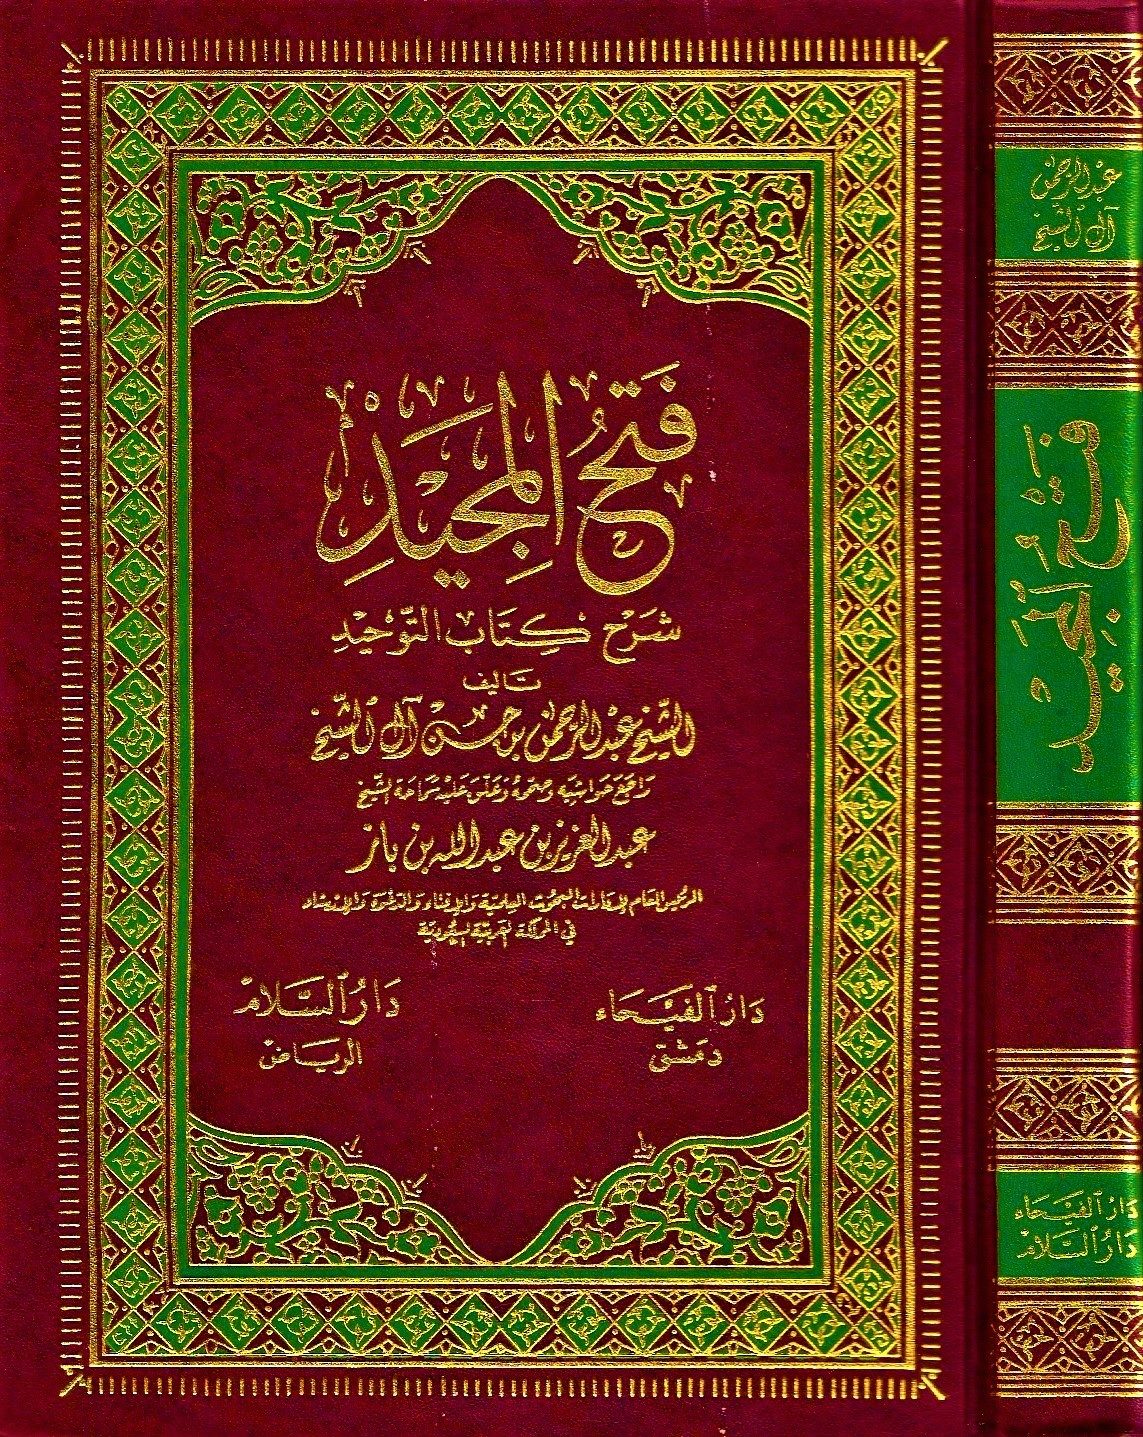 فَتْحُ المَجِيْدِ
شَرْح كِتَاب التَّوْحِيْدِ
تَأليف
الشَّيْخ عَبْد الرَّحمٰن بْن حَسَن آل الشَّيْخ
رَاجَعَ حَوَاشِيَهُ وَصَحَّحَهُ وَعَلَّقَ عَلَيْهِ سَمَاحَة الشَّيْخ
عبد العزيز بن عبد الله بن باز
الرئيس العام لإدارات البحوث العلمية والإفتاء والدعوة والإرشاد
في المملكة العربية السعودية
دَارُ الفَيْحَاء
دمَشْق
دَارُ السَّلَام
الرياض
عَبْد الرَّحمٰن
آل الشَّيْخ
فَتْحُ المَجِيْد
دَارُ الفَيْحَاء
دَارُ السَّلَام